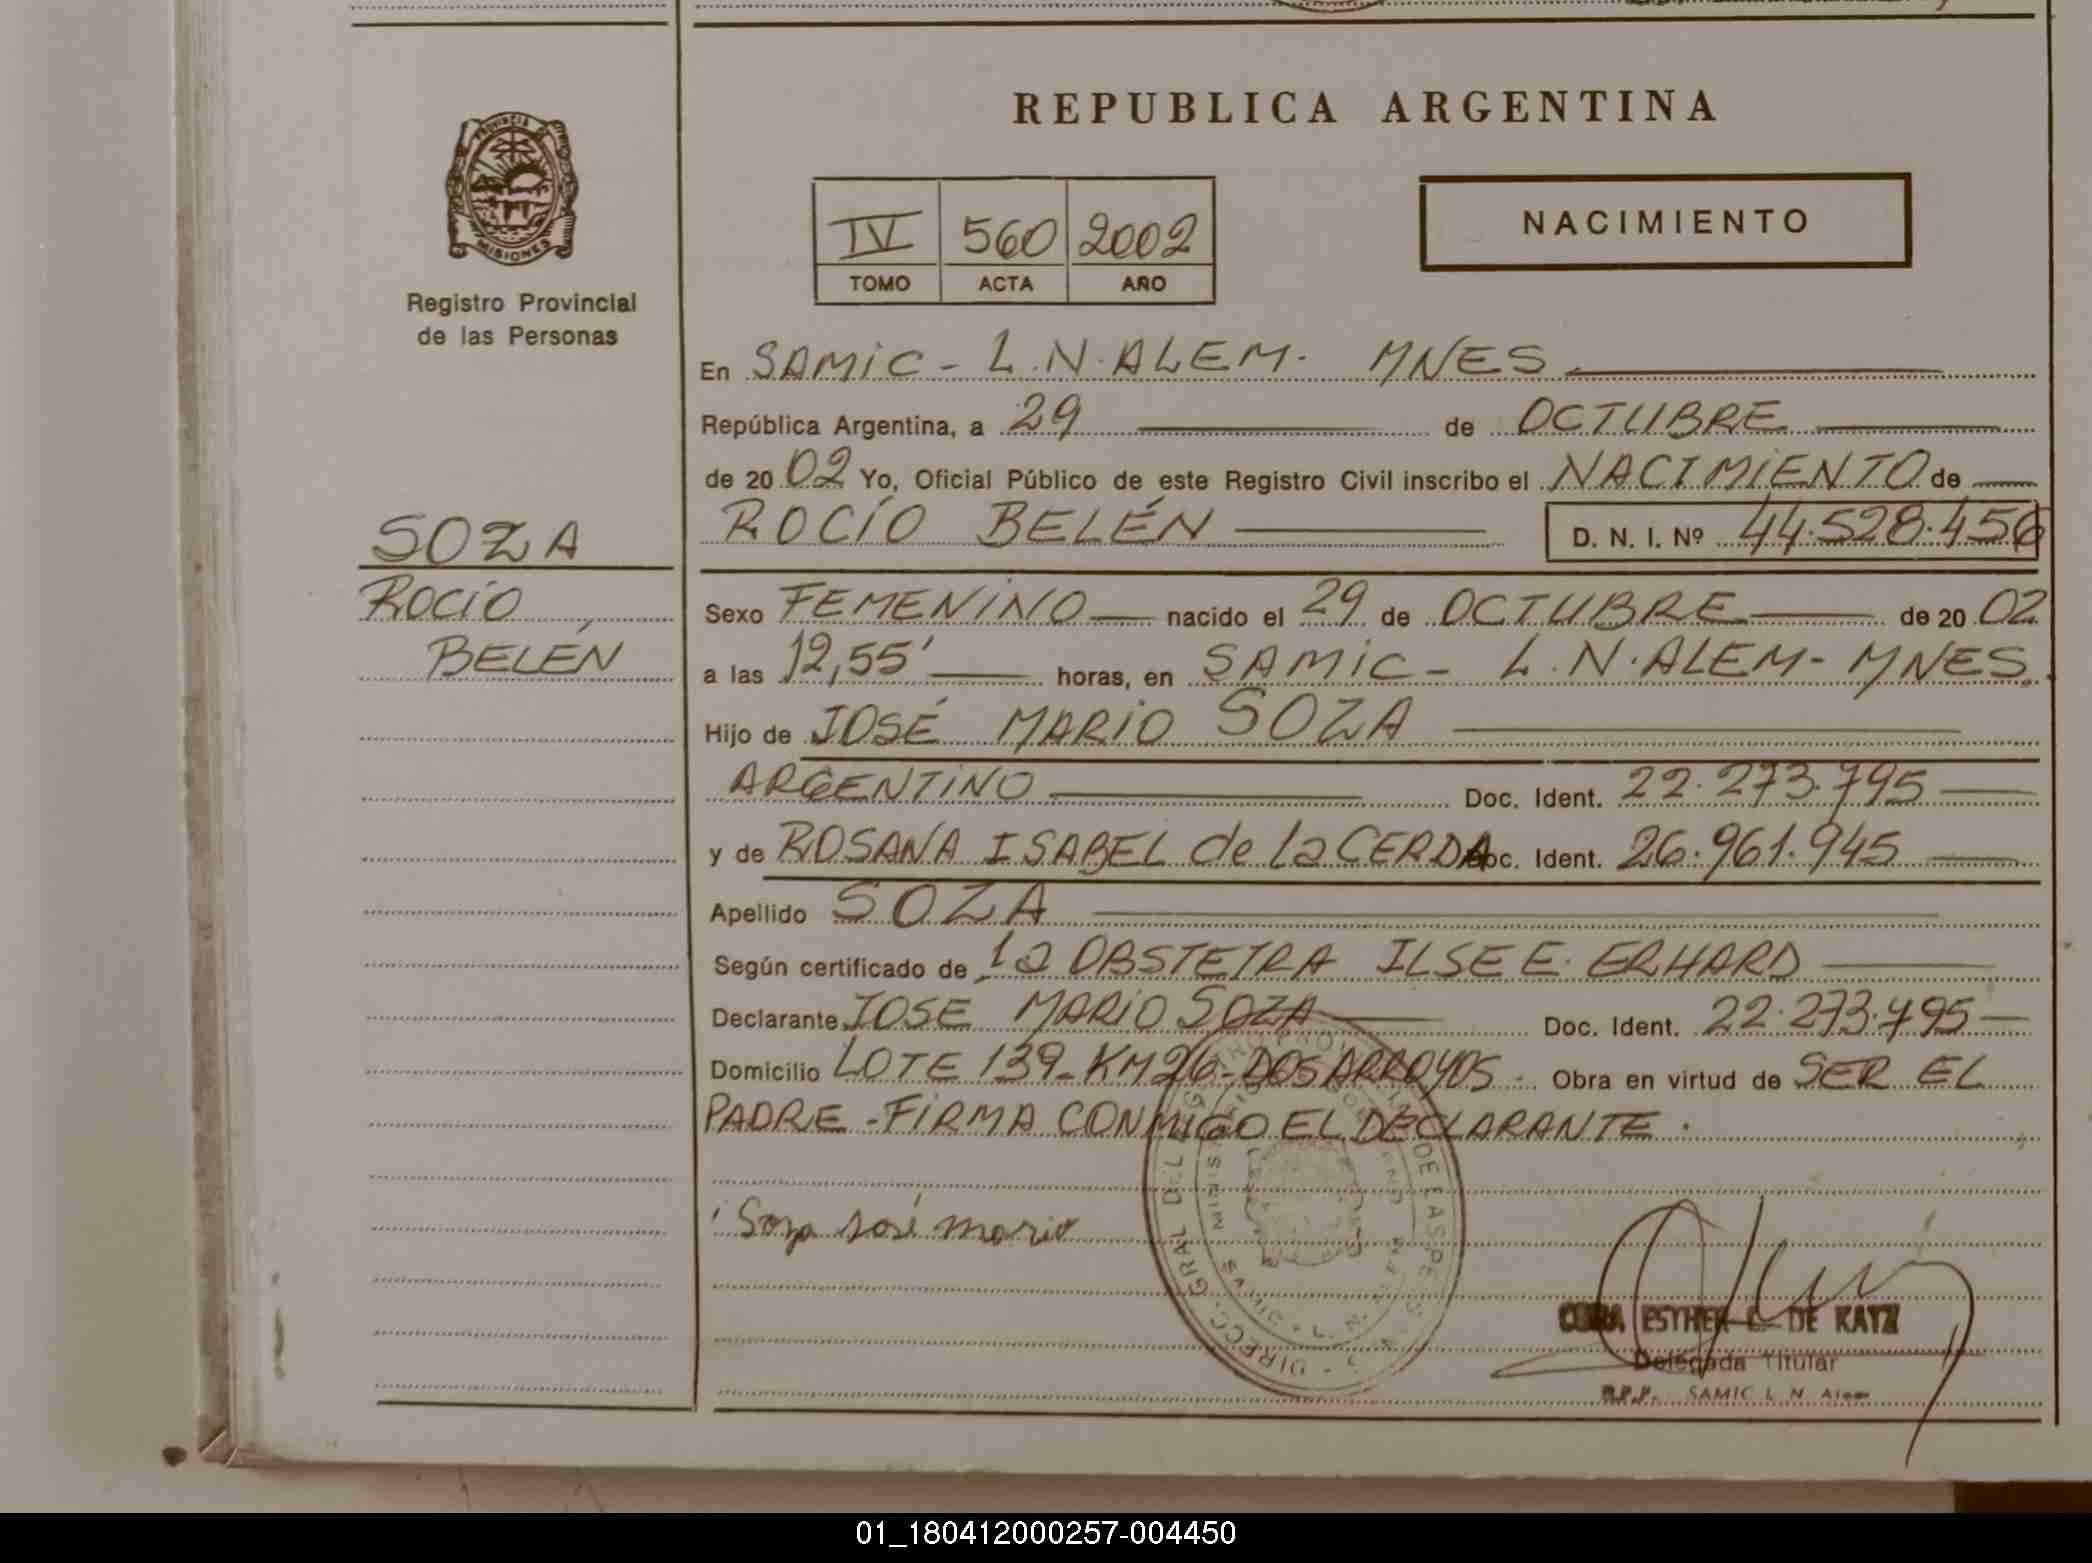 REPUBLICA ARGENTINA
PROVINCIA DE
MISIONES
Registro Provincial
de las Personas
IV 560 2002
TOMO ACTA AÑO
NACIMIENTO
En SAMIC - L.N. ALEM. MNES.
República Argentina, a 29 de OCTUBRE
de 2002 Yo, Oficial Público de este Registro Civil inscribo el NACIMIENTO de
SOZA
ROCÍO BELÉN
ROCÍO BELÉN D. N. I. Nº 44.528.456
Sexo FEMENINO nacido el 29 de OCTUBRE de 2002
a las 12,55' horas, en SAMIC - L.N. ALEM - MNES.
Hijo de JOSÉ MARIO SOZA
ARGENTINO Doc. Ident. 22.273.795
y de ROSANA ISABEL de la CERDA Doc. Ident. 26.961.945
Apellido SOZA
Según certificado de la OBSTETRA ILSE E. ERHARD
Declarante JOSE MARIO SOZA Doc. Ident. 22.273.795
Domicilio LOTE 139 - KM 26 - DOS ARROYOS. Obra en virtud de SER EL
PADRE - FIRMA CONMIGO EL DECLARANTE.
Soza José mario
DIRECC. GRAL. DEL
DE LAS PERS
SAMIC - L. N.
ESTHER DE KATZ
Delegada Titular
R.P.P. SAMIC L. N. Alem
01_180412000257-004450